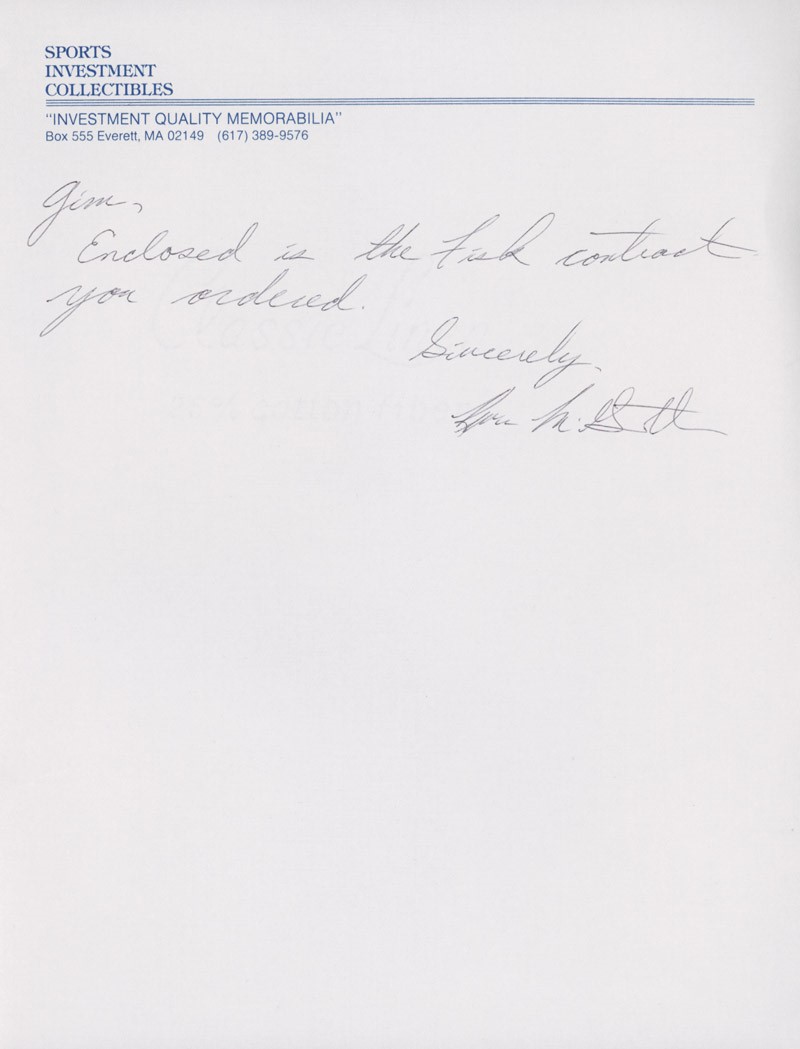 SPORTS
INVESTMENT
COLLECTIBLES
"INVESTMENT QUALITY MEMORABILIA"
Box 555 Everett, MA 02149 (617) 389-9576
Jim,
Enclosed is the Fisk contract
you ordered.
Sincerely,